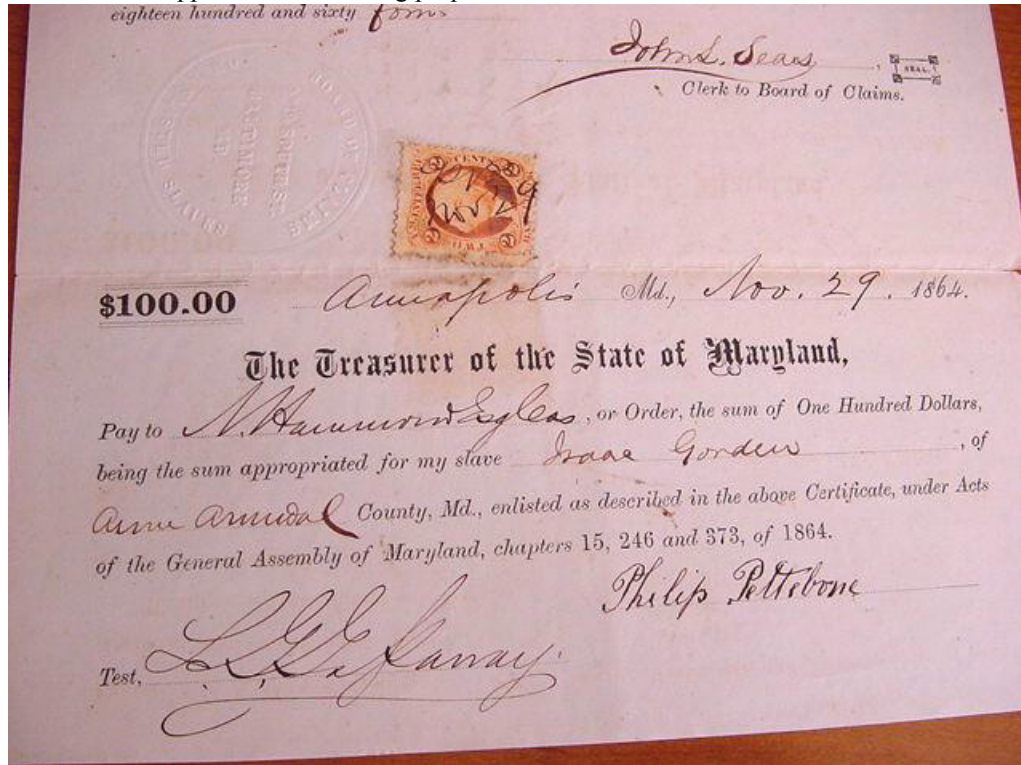 eighteen hundred and sixty four
John L. Sears
SEAL.
Clerk to Board of Claims.
$100.00 Annapolis Md., Nov. 29. 1864.
The Treasurer of the State of Maryland,
Pay to N. Hammond Esq , or Order, the sum of One Hundred Dollars,
being the sum appropriated for my slave Isaac Gorden , of
Anne Arundal County, Md., enlisted as described in the above Certificate, under Acts
of the General Assembly of Maryland, chapters 15, 246 and 373, of 1864.
Philip Pettebone
Test,